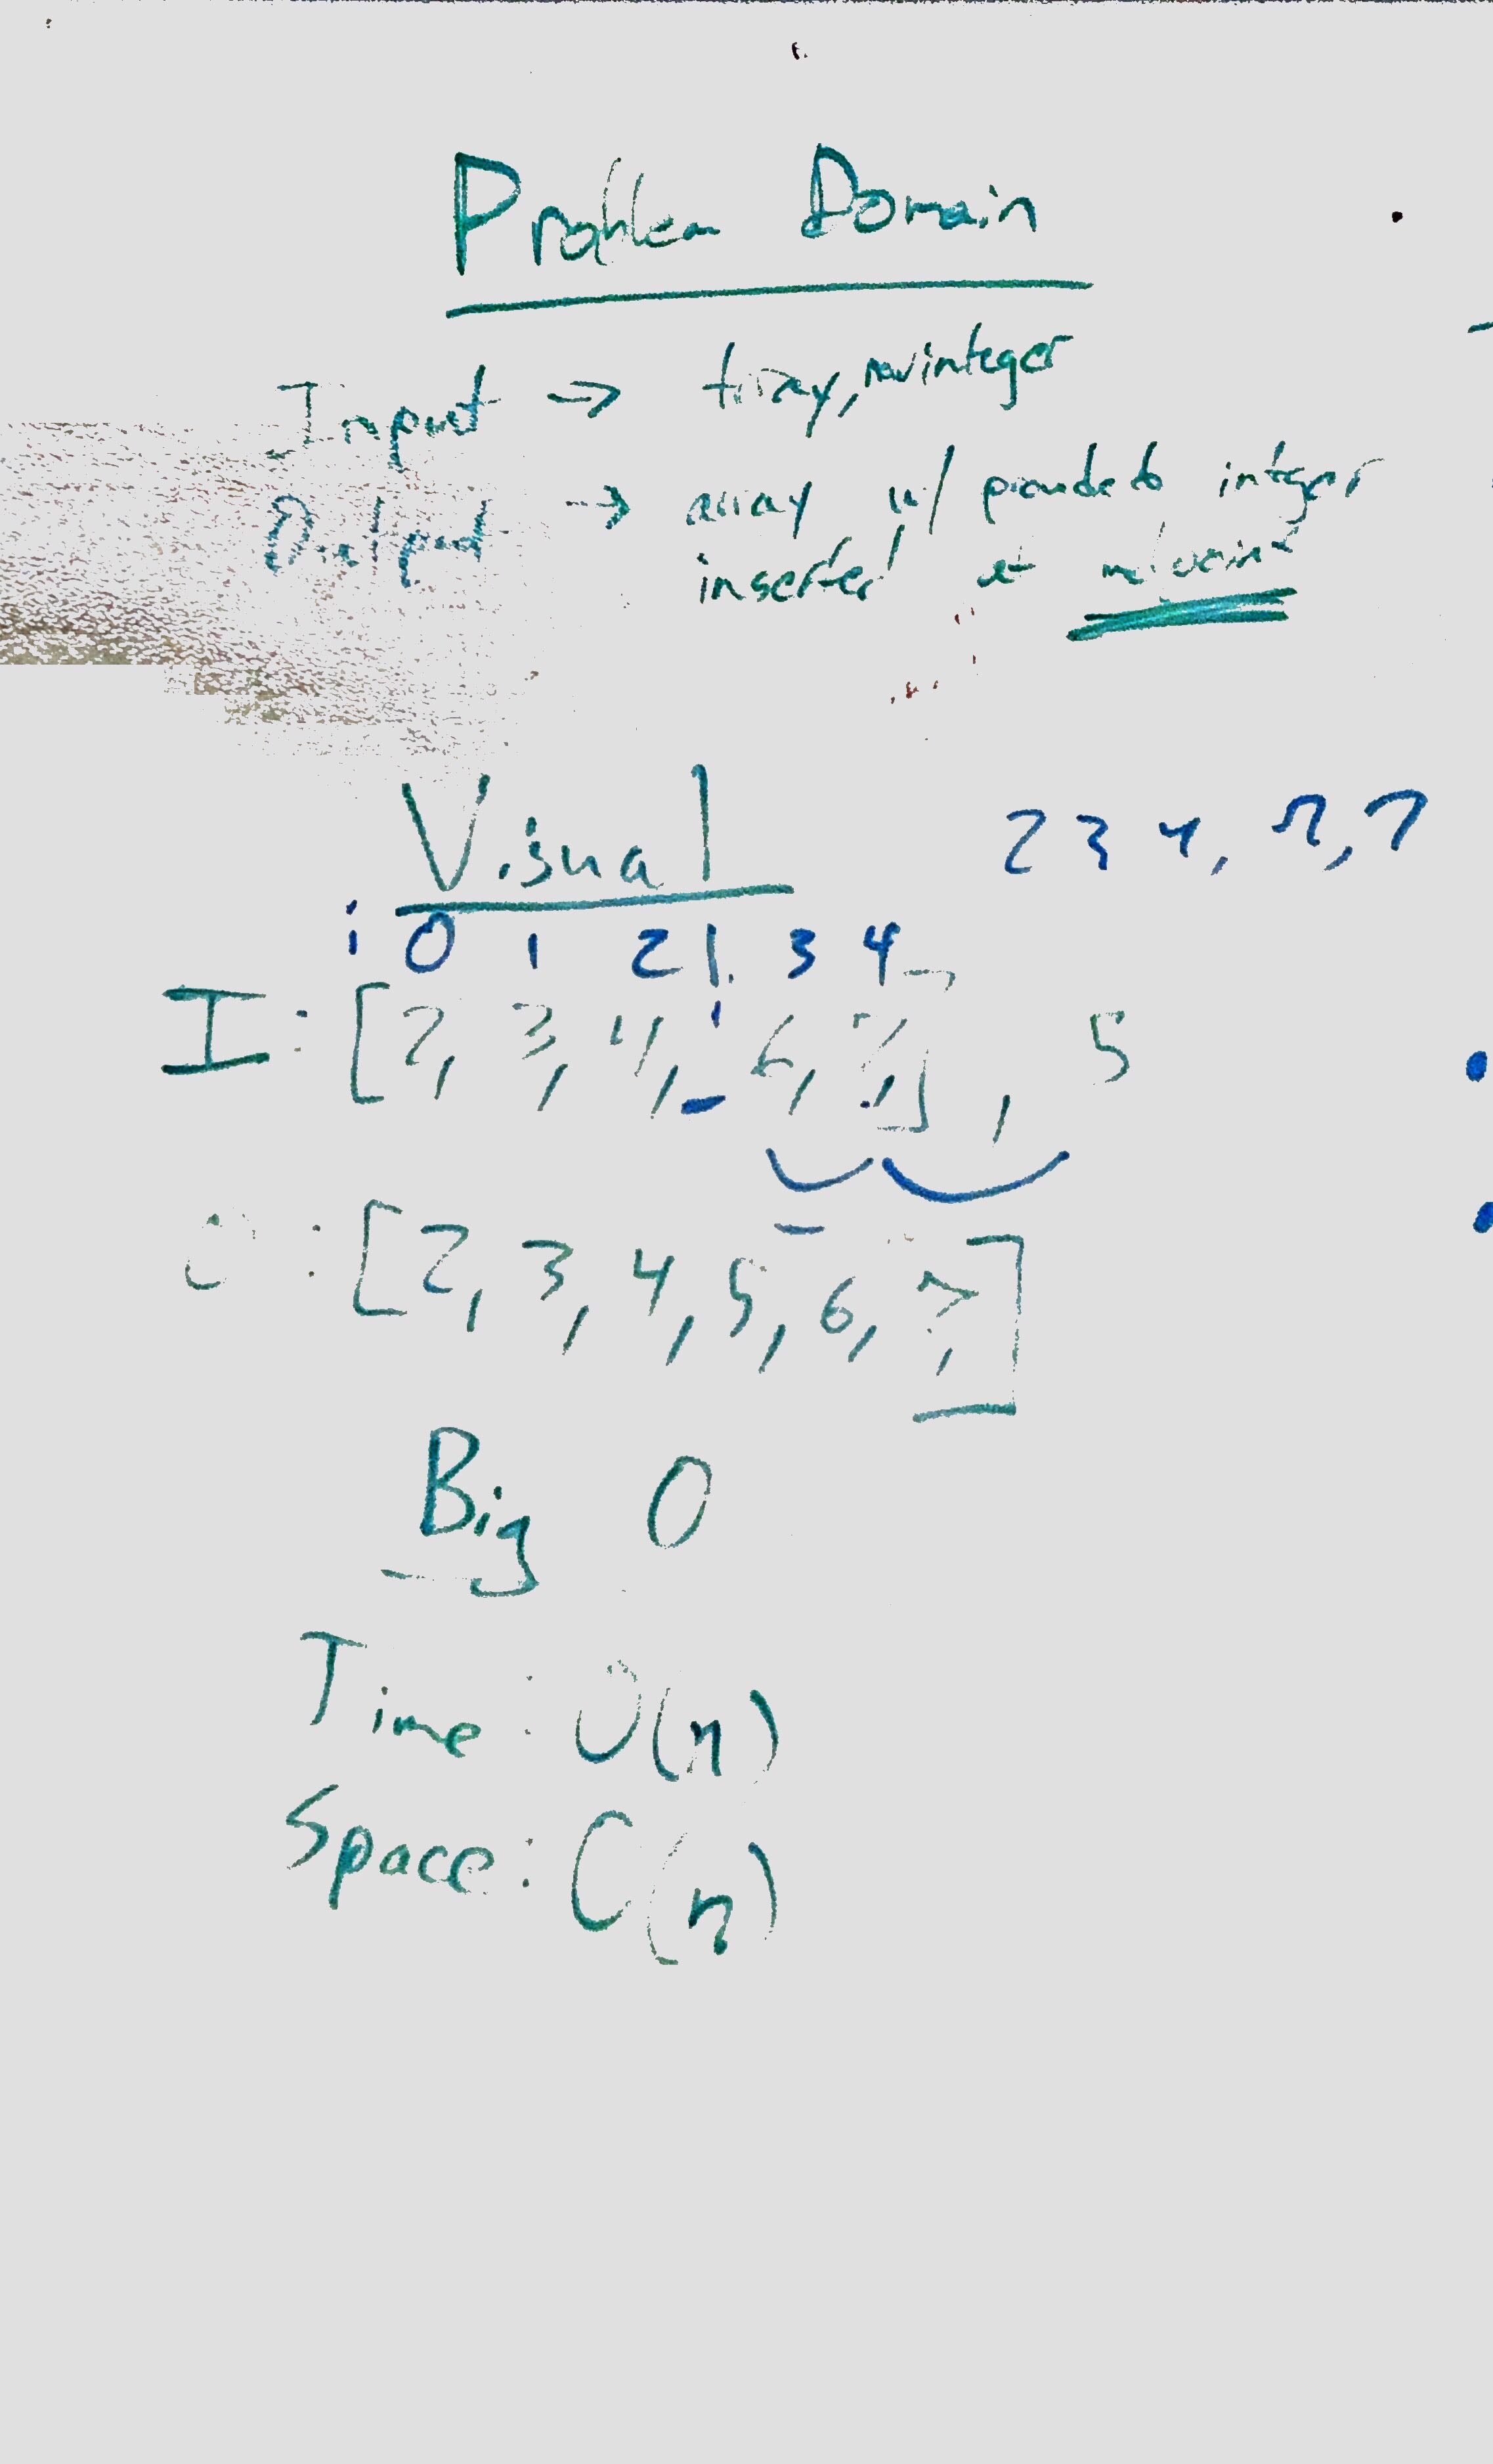 Problem Domain
Input → array, new integer
Output → array w/ integer
inserted at midpoint
Visual
2 3 4, 7
i 0 1 2 | 3 4
I: [2, 3, 4, _ 6, 7], 5
O: [2, 3, 4, 5, 6, 7]
Big O
Time: O(n)
Space: O(n)